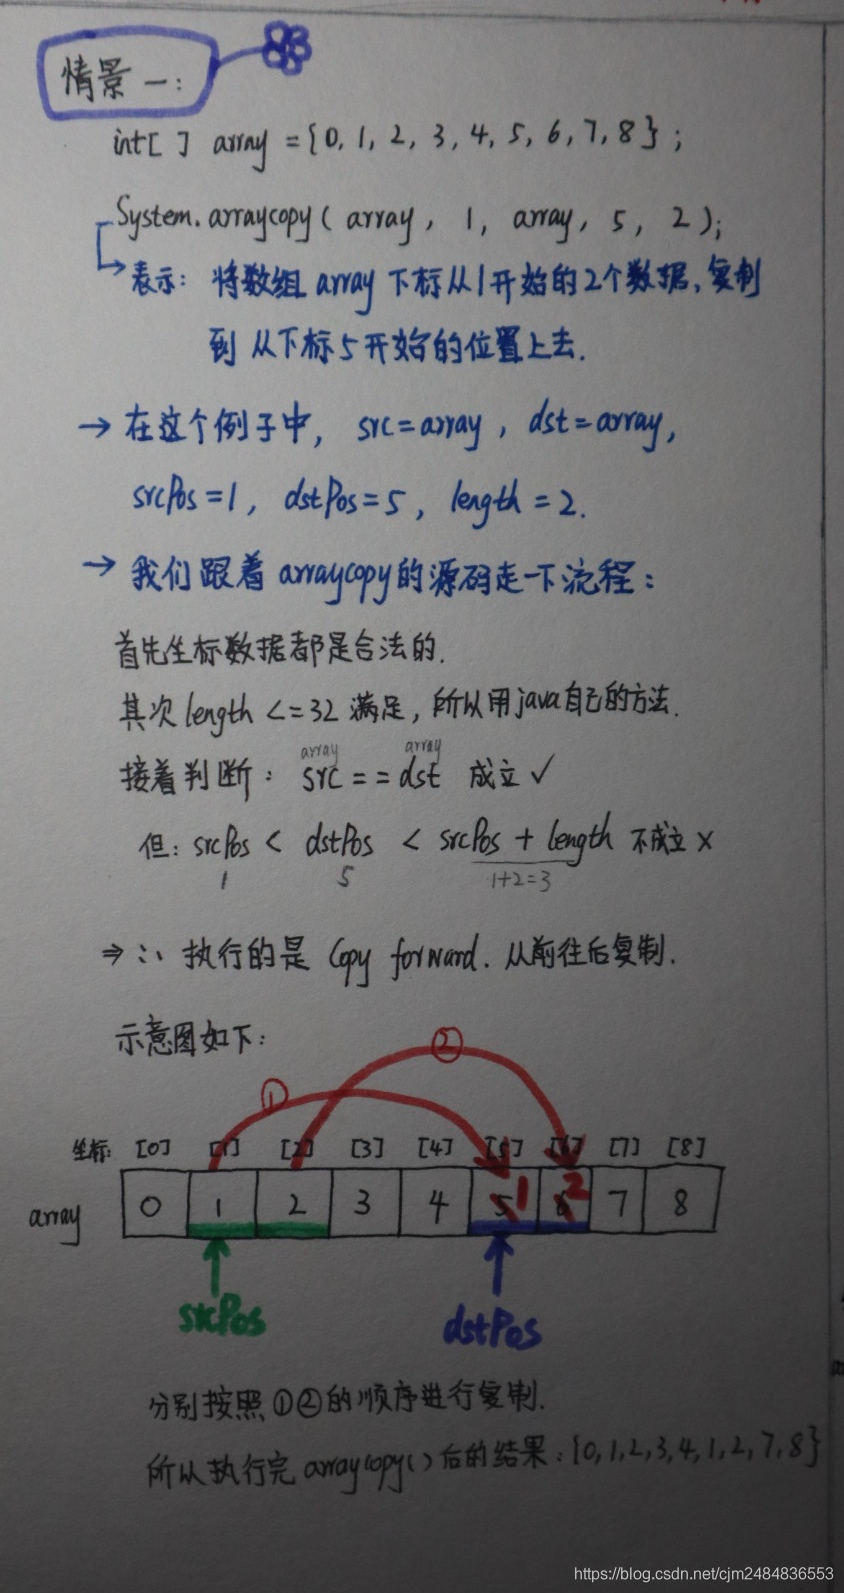 情景一:
int[ ] array = {0, 1, 2, 3, 4, 5, 6, 7, 8} ;
System.arraycopy( array, 1, array, 5, 2 );
表示: 将数组 array 下标从1开始的2个数据,复制
到 从下标5开始的位置上去.
→ 在这个例子中, src=array, dst=array,
srcPos=1, dstPos=5, length=2.
→ 我们跟着 arraycopy的源码走一下流程:
首先坐标数据都是合法的.
其次 length <=32 满足, 所以用java自己的方法.
array array
接着判断: src == dst 成立 ✓
但: srcPos < dstPos < srcPos + length 不成立 ×
1 5 1+2=3
⇒ ∴ 执行的是 Copy forward. 从前往后复制.
示意图如下:
① ②
坐标: [0] [1] [2] [3] [4] [5] [6] [7] [8]
array 0 1 2 3 4 5 1 6 2 7 8
srcPos dstPos
分别按照①②的顺序进行复制.
所以执行完 arraycopy() 后的结果: {0,1,2,3,4,1,2,7,8}
https://blog.csdn.net/cjm2484836553